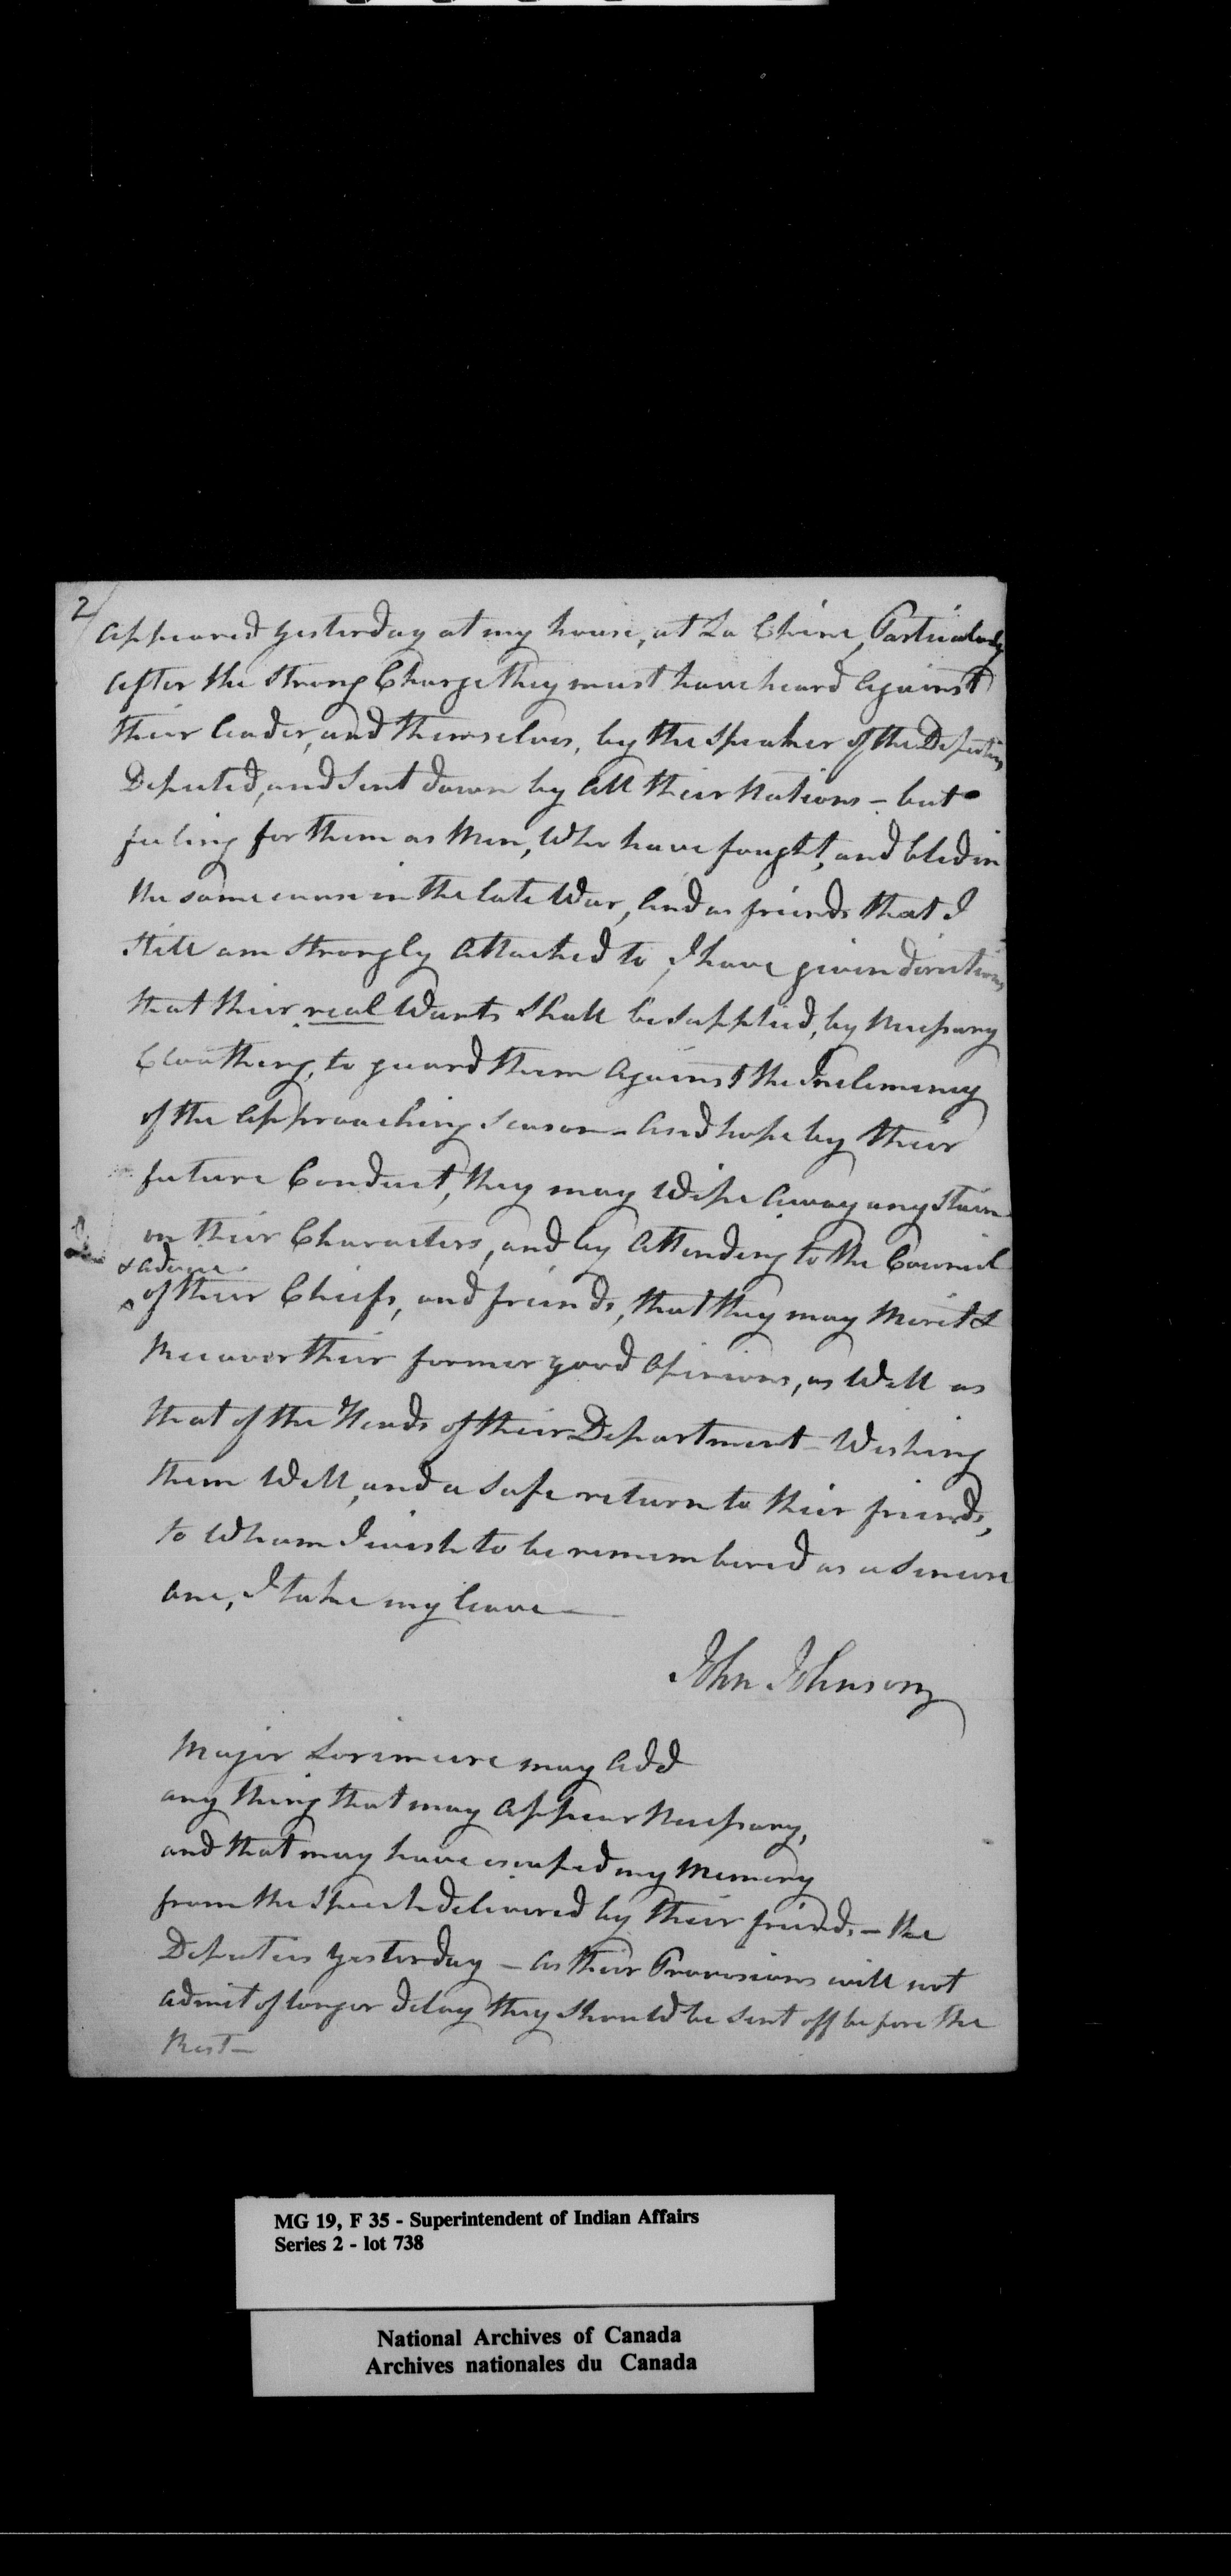 2/
appeared yesterday at my house, at La Chine, Particularly
after the Strong Charge they must have heard against
their leader, and themselves, by the Speaker of the Deputies
Deputed, and Sent down by all their Nations – but
feeling for them as Men, Who have fought, and bled in
the same cause in the late War, and as friends that I
still am strongly Attached to, I have given directions
that their real Wants Shall be supplied, by Necessary
Cloathing, to guard them Against the Inclemency
of the approaching Season – And hope by their
future Conduct, they may Wipe Away any Stain
on their Characters, and by Attending to the Council
& advice
of their Chiefs, and friends, that they may Merit &
Recover their former good Opinions, as Well as
that of the Heads of their Department – Wishing
them Well, and a safe return to their friends,
to Whom I wish to be remembered as a Sincere
one, I take my leave —
John Johnson
Major Lorimiere may add
any thing that may Appear Necessary,
and that may have escaped my Memory
from the Speech delivered by their friends – the
Deputies yesterday – as their Provisions will not
admit of longer delay they Should be Sent off before the
Rest –
MG 19, F 35 - Superintendent of Indian Affairs
Series 2 - lot 738
National Archives of Canada
Archives nationales du Canada